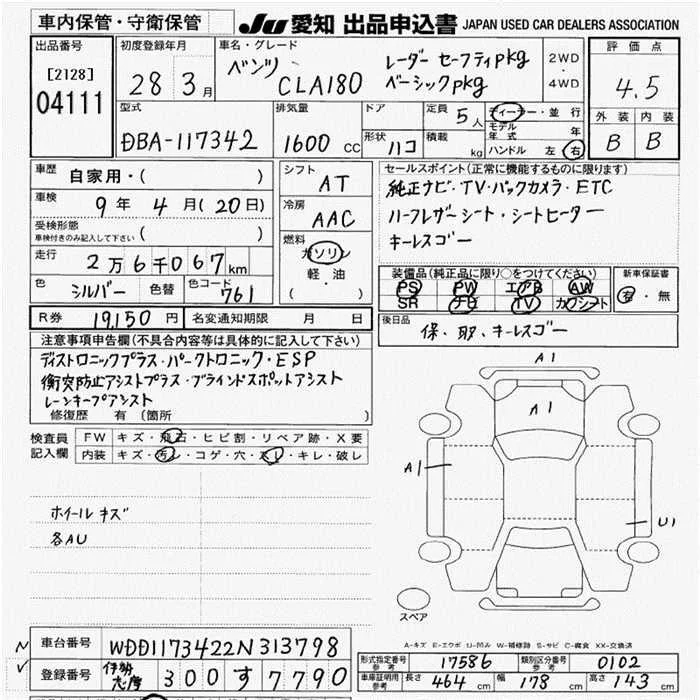 車内保管・守衛保管
JU 愛知 出品申込書 JAPAN USED CAR DEALERS ASSOCIATION
出品番号
[2128]
04111
初度登録年月
28 3月
車名・グレード
ベンツ CLA180
レーダー セーフティpkg
ベーシックpkg
2WD
・
4WD
評価点
4.5
外装 内装
B B
型式
DBA-117342
排気量
1600 CC
ドア
形状 ハコ
定員 5人
積載 kg
ディーラー・並行
モデル年式 年
ハンドル 左 右
車歴
自家用・( )
車検
9年 4月(20日)
受検形態
車検付きのみ記入して下さい ( )
走行
2万6千067km
色 シルバー 色替 色コード 761
シフト
AT
冷房
AAC
燃料
ガソリン
軽・油
( )
セールスポイント(正常に機能するものに限ります)
純正ナビ・TV・バックカメラ・ETC
ハーフレザーシート・シートヒーター
キーレスゴー
装備品(純正品に限り○をつけてください)
PS PW エアB AW
SR ナビ TV カワシート
新車保証書
有・無
R券 19,150円 名変通知期限 月 日
後日品 保、取、キーレスゴー
注意事項申告欄(不具合内容等は具体的に記入して下さい)
ディストロニックプラス・パークトロニック・ESP
衝突防止アシストプラス・ブラインドスポットアシスト
レーンキープアシスト
修復歴 有 (箇所 )
検査員
記入欄
FW キズ・飛石・ヒビ割・リペア跡・X要
内装 キズ・汚レ・コゲ・穴・スレ・キレ・破レ
ホイールキズ
各AU
A1
A1
A1
U1
スペア
A-キズ E-エクボ U-凹み W-補修跡 S-サビ C-腐食 XX-交換済
車台番号 WDD1173422N313798
登録番号 伊勢志摩 300 す 7790
型式指定番号 参考 17586 類別区分番号 参考 0102
車庫証明用 参考 長さ 464cm 幅 178cm 高さ 143cm